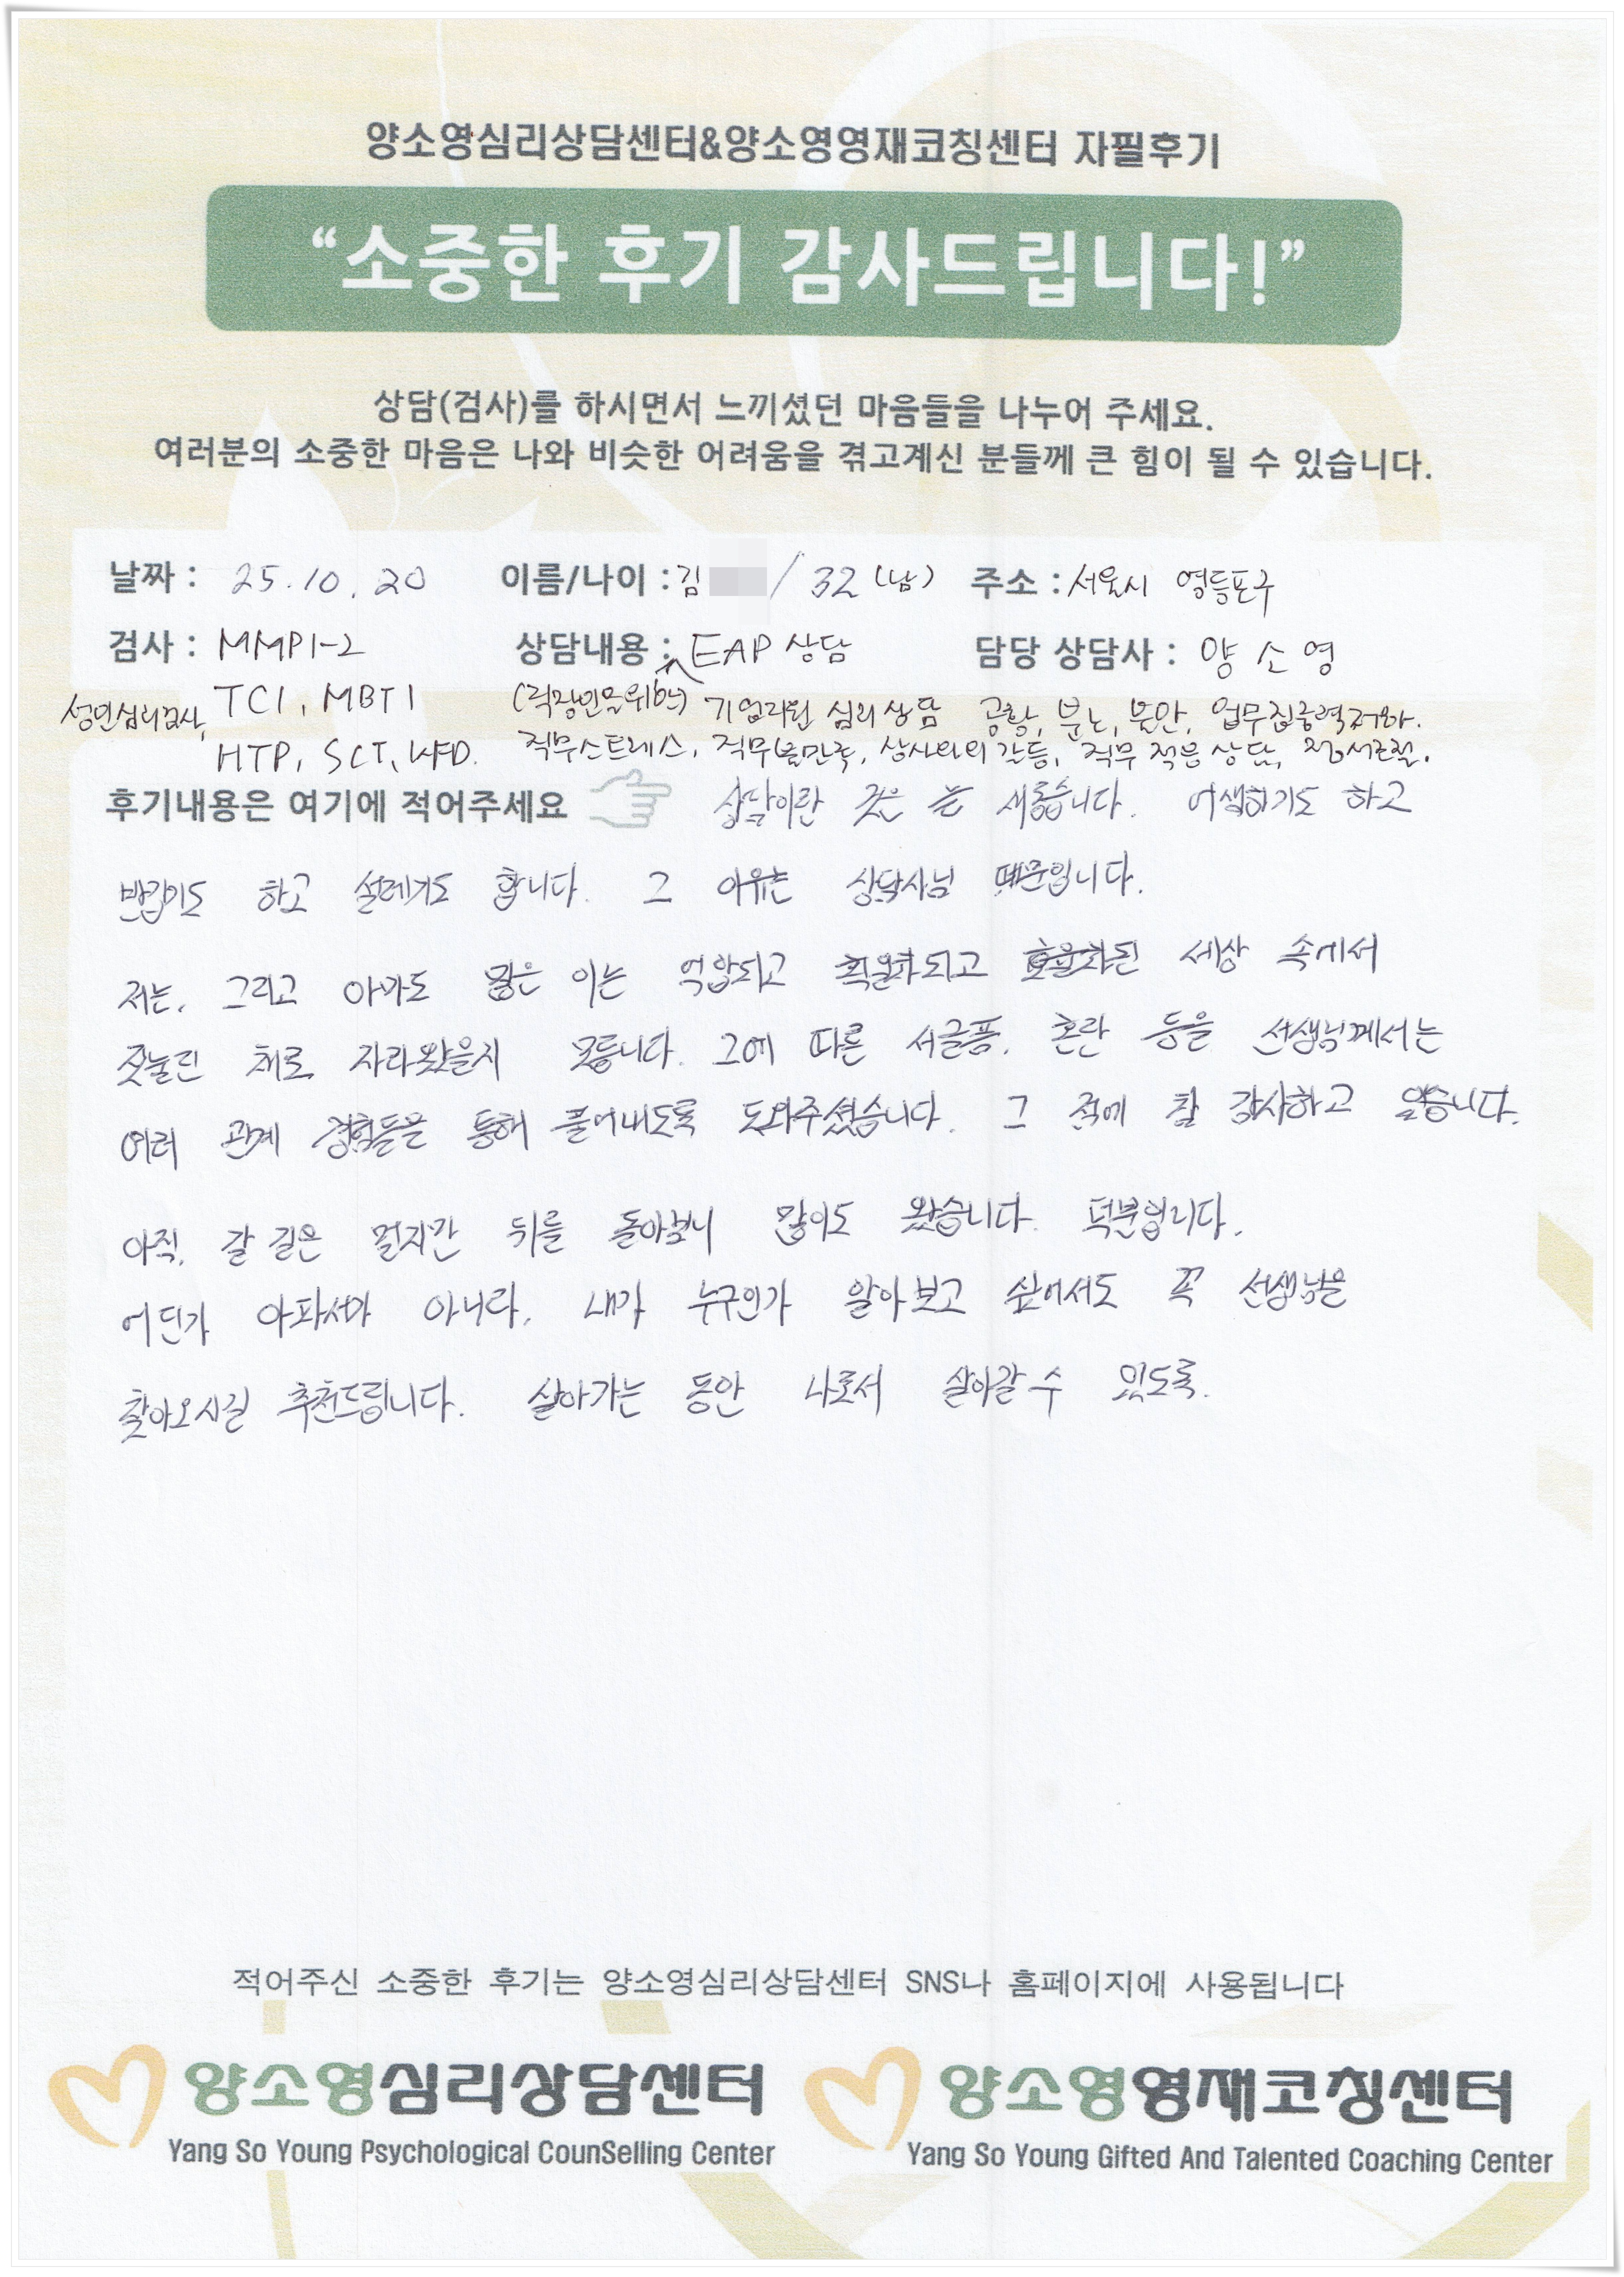 양소영심리상담센터&양소영영재코칭센터 자필후기
“소중한 후기 감사드립니다!”
상담(검사)를 하시면서 느끼셨던 마음들을 나누어 주세요.
여러분의 소중한 마음은 나와 비슷한 어려움을 겪고계신 분들께 큰 힘이 될 수 있습니다.
날짜 : 25.10.20 이름/나이 : 김 / 32 (남) 주소 : 서울시 영등포구
검사 : MMPI-2 상담내용 : EAP 상담 담당 상담사 : 양소영
성인심리검사, TCI, MBTI (직장인 기업지원 심리상담 공황, 분노, 불안, 업무집중력저하.
HTP, SCT, KFD. 직무스트레스, 직무불만족, 상사와의 갈등, 직무 적응 상담, 정서조절.
후기내용은 여기에 적어주세요 상담이란 것은 늘 새롭습니다. 어색하기도 하고
반갑기도 하고 설레기도 합니다. 그 이유는 상담사님 때문입니다.
저는, 그리고 아마도 많은 이는 억압되고 획일화되고 효율화된 세상 속에서
짓눌린 채로 자라왔을지 모릅니다. 그에 따른 서글픔, 혼란 등을 선생님께서는
여러 관계 경험들을 통해 풀어내도록 도와주셨습니다. 그 점에 참 감사하고 있습니다.
아직, 갈 길은 멀지만 뒤를 돌아보니 많이도 왔습니다. 덕분입니다.
어딘가 아파서가 아니라, 내가 누구인가 알아보고 싶어서도 꼭 선생님을
찾아오시길 추천드립니다. 살아가는 동안 나로서 살아갈 수 있도록.
적어주신 소중한 후기는 양소영심리상담센터 SNS나 홈페이지에 사용됩니다
양소영심리상담센터 양소영영재코칭센터
Yang So Young Psychological CounSelling Center Yang So Young Gifted And Talented Coaching Center